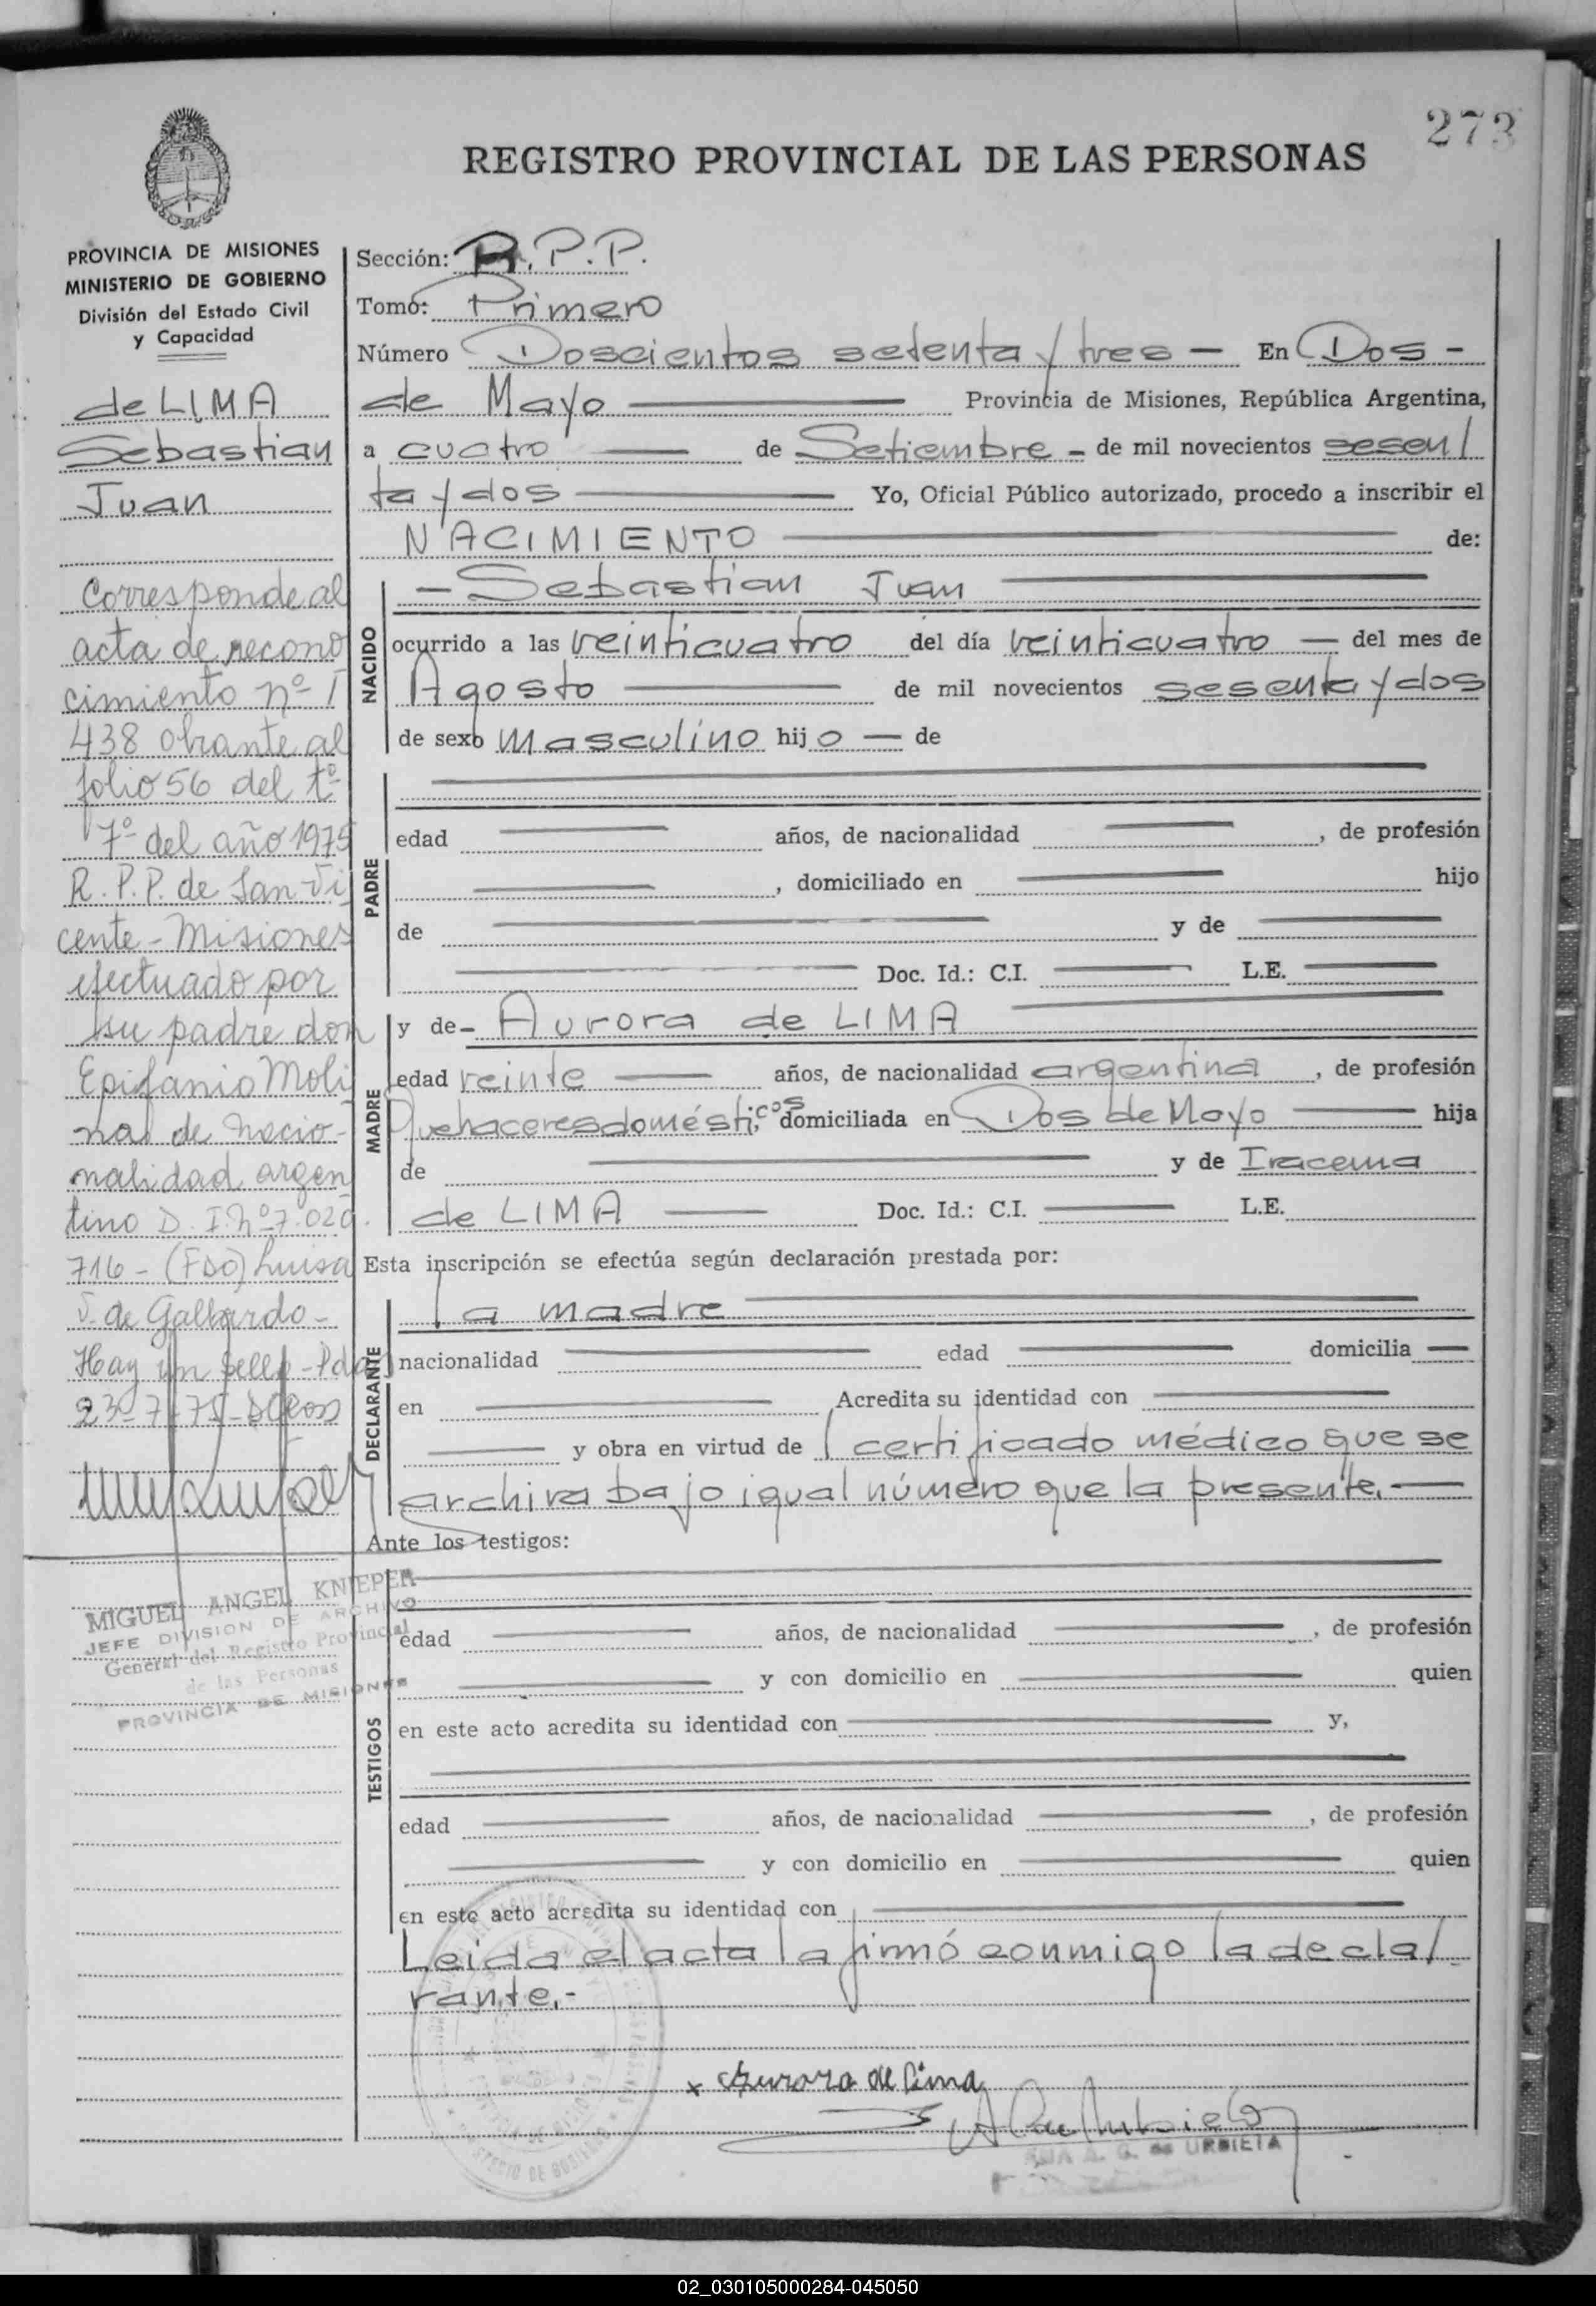 273
REGISTRO PROVINCIAL DE LAS PERSONAS
PROVINCIA DE MISIONES
MINISTERIO DE GOBIERNO
División del Estado Civil
y Capacidad
de LIMA
Sebastian
Juan
Corresponde al
acta de recono
cimiento nº 1
438 obrante al
folio 56 del tº
7º del año 1975
R.P.P. de San Vi
cente - Misiones
efectuado por
su padre don
Epifanio Moli
na de nacio-
nalidad argen
tino D.I. Nº 7.029.
716 - (FDO) Luisa
V. de Gallardo -
Hay un sello - Pdas
23-7-75
MIGUEL ANGEL KNIEPER
JEFE DIVISION DE ARCHIVO
General del Registro Provincial
de las Personas
PROVINCIA DE MISIONES
Sección: R.P.P.
Tomo: Primero
Número Doscientos setenta y tres — En Dos -
de Mayo — Provincia de Misiones, República Argentina,
a cuatro — de Setiembre - de mil novecientos sesen/
ta y dos — Yo, Oficial Público autorizado, procedo a inscribir el
NACIMIENTO — de:
NACIDO
- Sebastian Juan —
ocurrido a las veinticuatro del día veinticuatro — del mes de
Agosto — de mil novecientos sesenta y dos
de sexo masculino hijo — de
PADRE
edad — años, de nacionalidad — , de profesión
— , domiciliado en — hijo
de — y de —
— Doc. Id.: C.I. — L.E. —
MADRE
y de - Aurora de LIMA —
edad veinte — años, de nacionalidad argentina , de profesión
Quehaceres domésticos, domiciliada en Dos de Mayo — hija
de — y de Iracema
de LIMA — Doc. Id.: C.I. — L.E.
Esta inscripción se efectúa según declaración prestada por:
DECLARANTE
la madre —
nacionalidad — edad — domicilia —
en — Acredita su identidad con —
— y obra en virtud de certificado médico que se
archiva bajo igual número que la presente.-—
Ante los testigos:
TESTIGOS
edad — años, de nacionalidad — , de profesión
— y con domicilio en — quien
en este acto acredita su identidad con — y,
edad — años, de nacionalidad — , de profesión
— y con domicilio en — quien
en este acto acredita su identidad con —
Leida el acta la firmó conmigo la decla/
rante.-
x Aurora de Lima
ANA A. G. de URBIETA
02_030105000284-045050